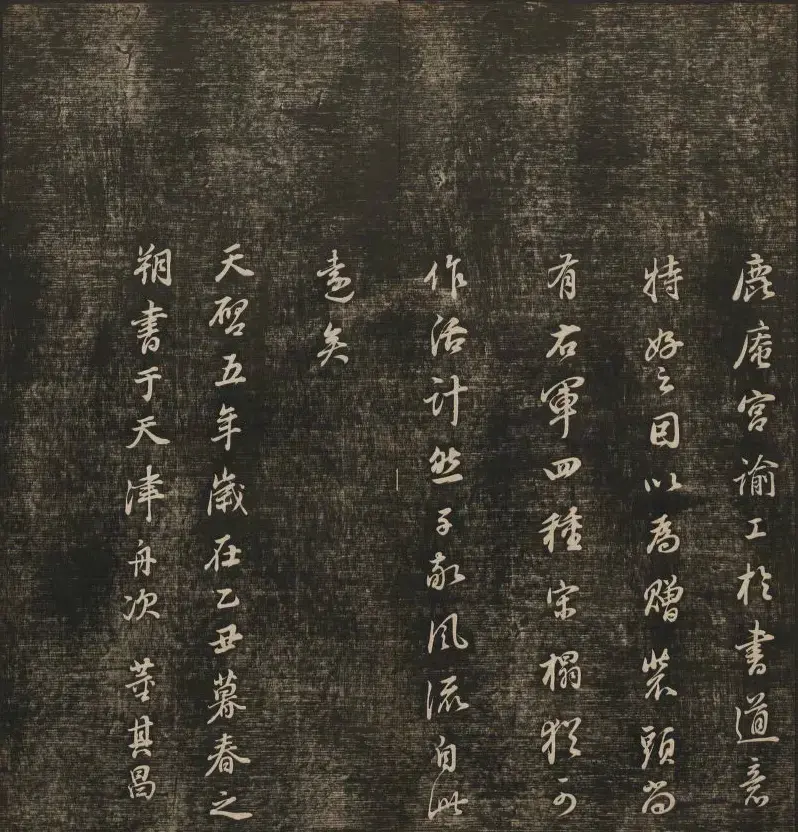 鹿庵宮諭工於書道意
特好之因以為贈裝頭尚
有右軍四種宋榻猶可
作活計然子敬風流自此
遠矣
天啓五年歲在乙丑暮春之
朔書于天津舟次 董其昌